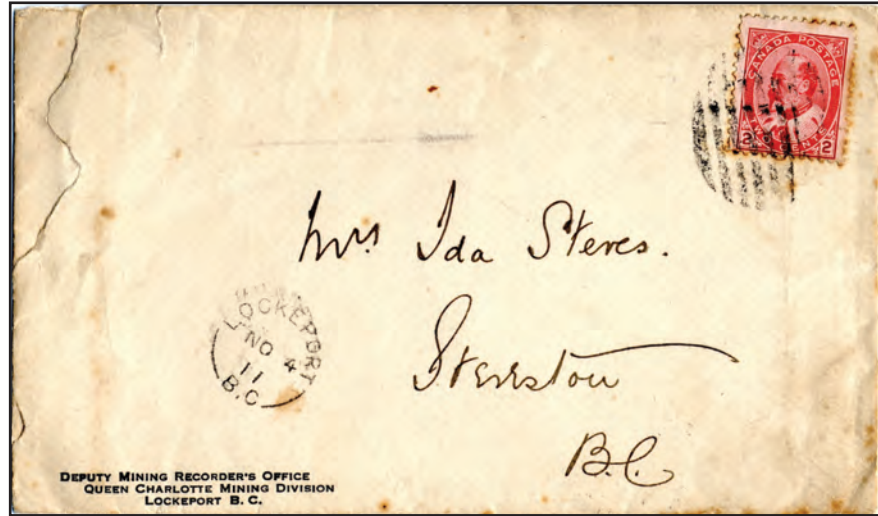 CANADA POSTAGE
TWO CENTS
2 2
Mrs Ida Steves.
Steveston
B.C.
LOCKEPORT
NO 4
11
B.C
DEPUTY MINING RECORDER'S OFFICE
QUEEN CHARLOTTE MINING DIVISION
LOCKEPORT B. C.